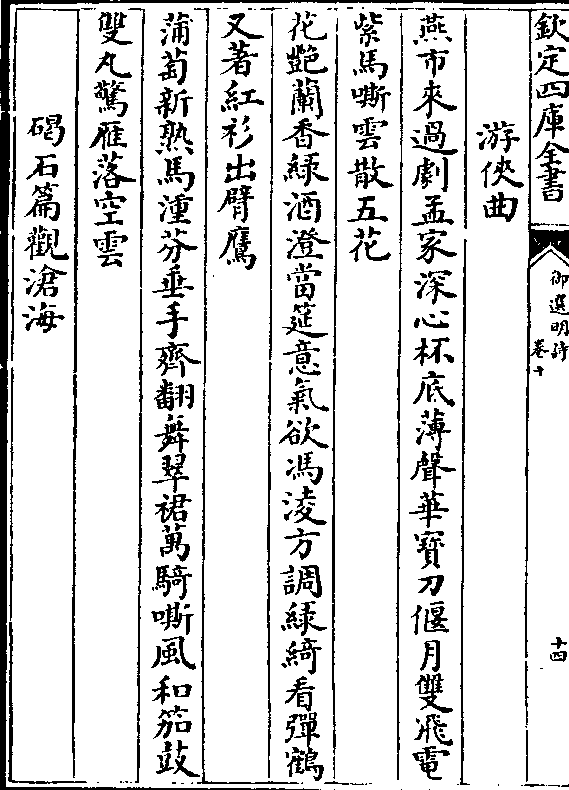 欽定四庫全書
御選明詩
卷十
十四
游俠曲
燕市來過劇孟家深心杯底薄聲華寶刀偃月雙飛電
紫馬嘶雲散五花
花艷蘭香緑酒澄當筵意氣欲馮淩方調緑綺看彈鶴
又著紅衫出臂鷹
蒲萄新熟馬湩芬垂手齊翻舞翠裙萬騎嘶風和笳鼓
雙丸驚雁落空雲
碣石篇觀滄海